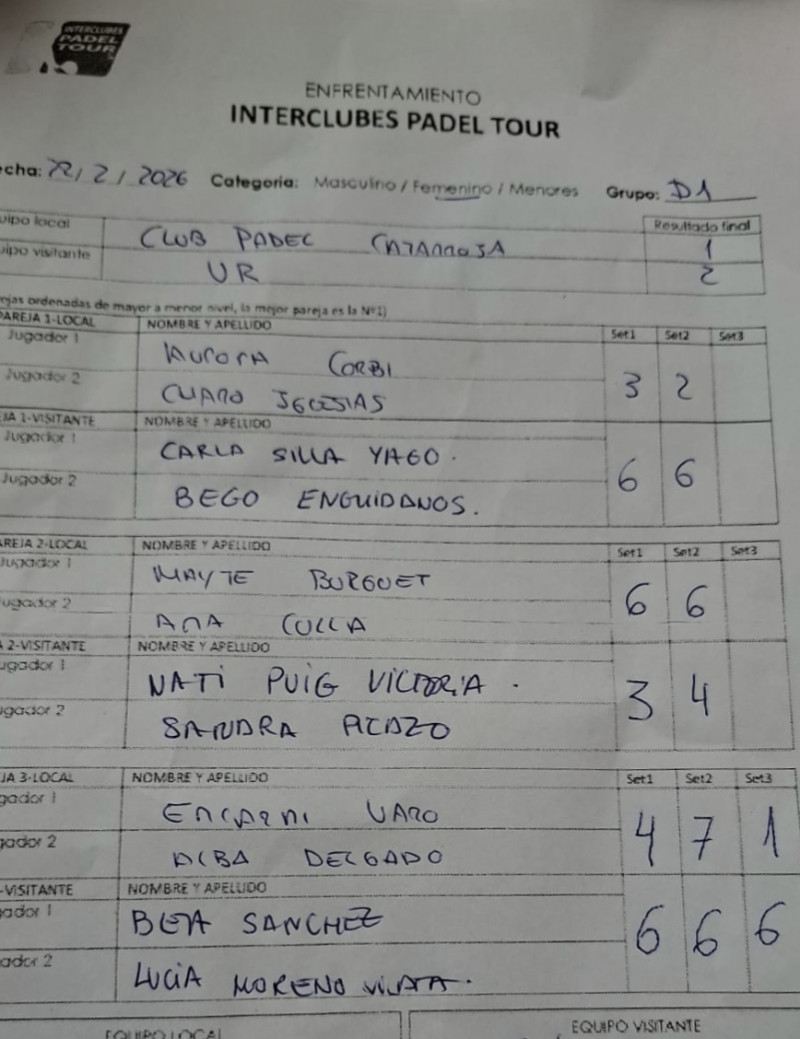 INTERCLUBES
PADEL
TOUR
ENFRENTAMIENTO
INTERCLUBES PADEL TOUR
echa: 22/2/2026 Categoría: Masculino / Femenino / Menores Grupo: D1
uipo local CLUB PADEL CATARROJA Resultado final 1
uipo visitante UR 2
ejas ordenadas de mayor a menor nivel, la mejor pareja es la Nº1)
PAREJA 1-LOCAL NOMBRE Y APELLIDO Set1 Set2 Set3
Jugador 1 AURORA CORBI
Jugador 2 CHARO IGLESIAS 3 2
JA 1-VISITANTE NOMBRE Y APELLIDO
Jugador 1 CARLA SILLA YAGO.
Jugador 2 BEGO ENGUIDANOS. 6 6
AREJA 2-LOCAL NOMBRE Y APELLIDO Set1 Set2 Set3
Jugador 1 MAYTE BURGUET
ugador 2 ANA COLLA 6 6
A 2-VISITANTE NOMBRE Y APELLIDO
ugador 1 NATI PUIG VICTORIA.
ugador 2 SANDRA PICAZO 3 4
JA 3-LOCAL NOMBRE Y APELLIDO Set1 Set2 Set3
gador 1 ENCARNI VARO
gador 2 ALBA DELGADO 4 7 1
-VISITANTE NOMBRE Y APELLIDO
ador 1 BEA SANCHEZ
ador 2 LUCIA MORENO 6 6 6
EQUIPO LOCAL EQUIPO VISITANTE